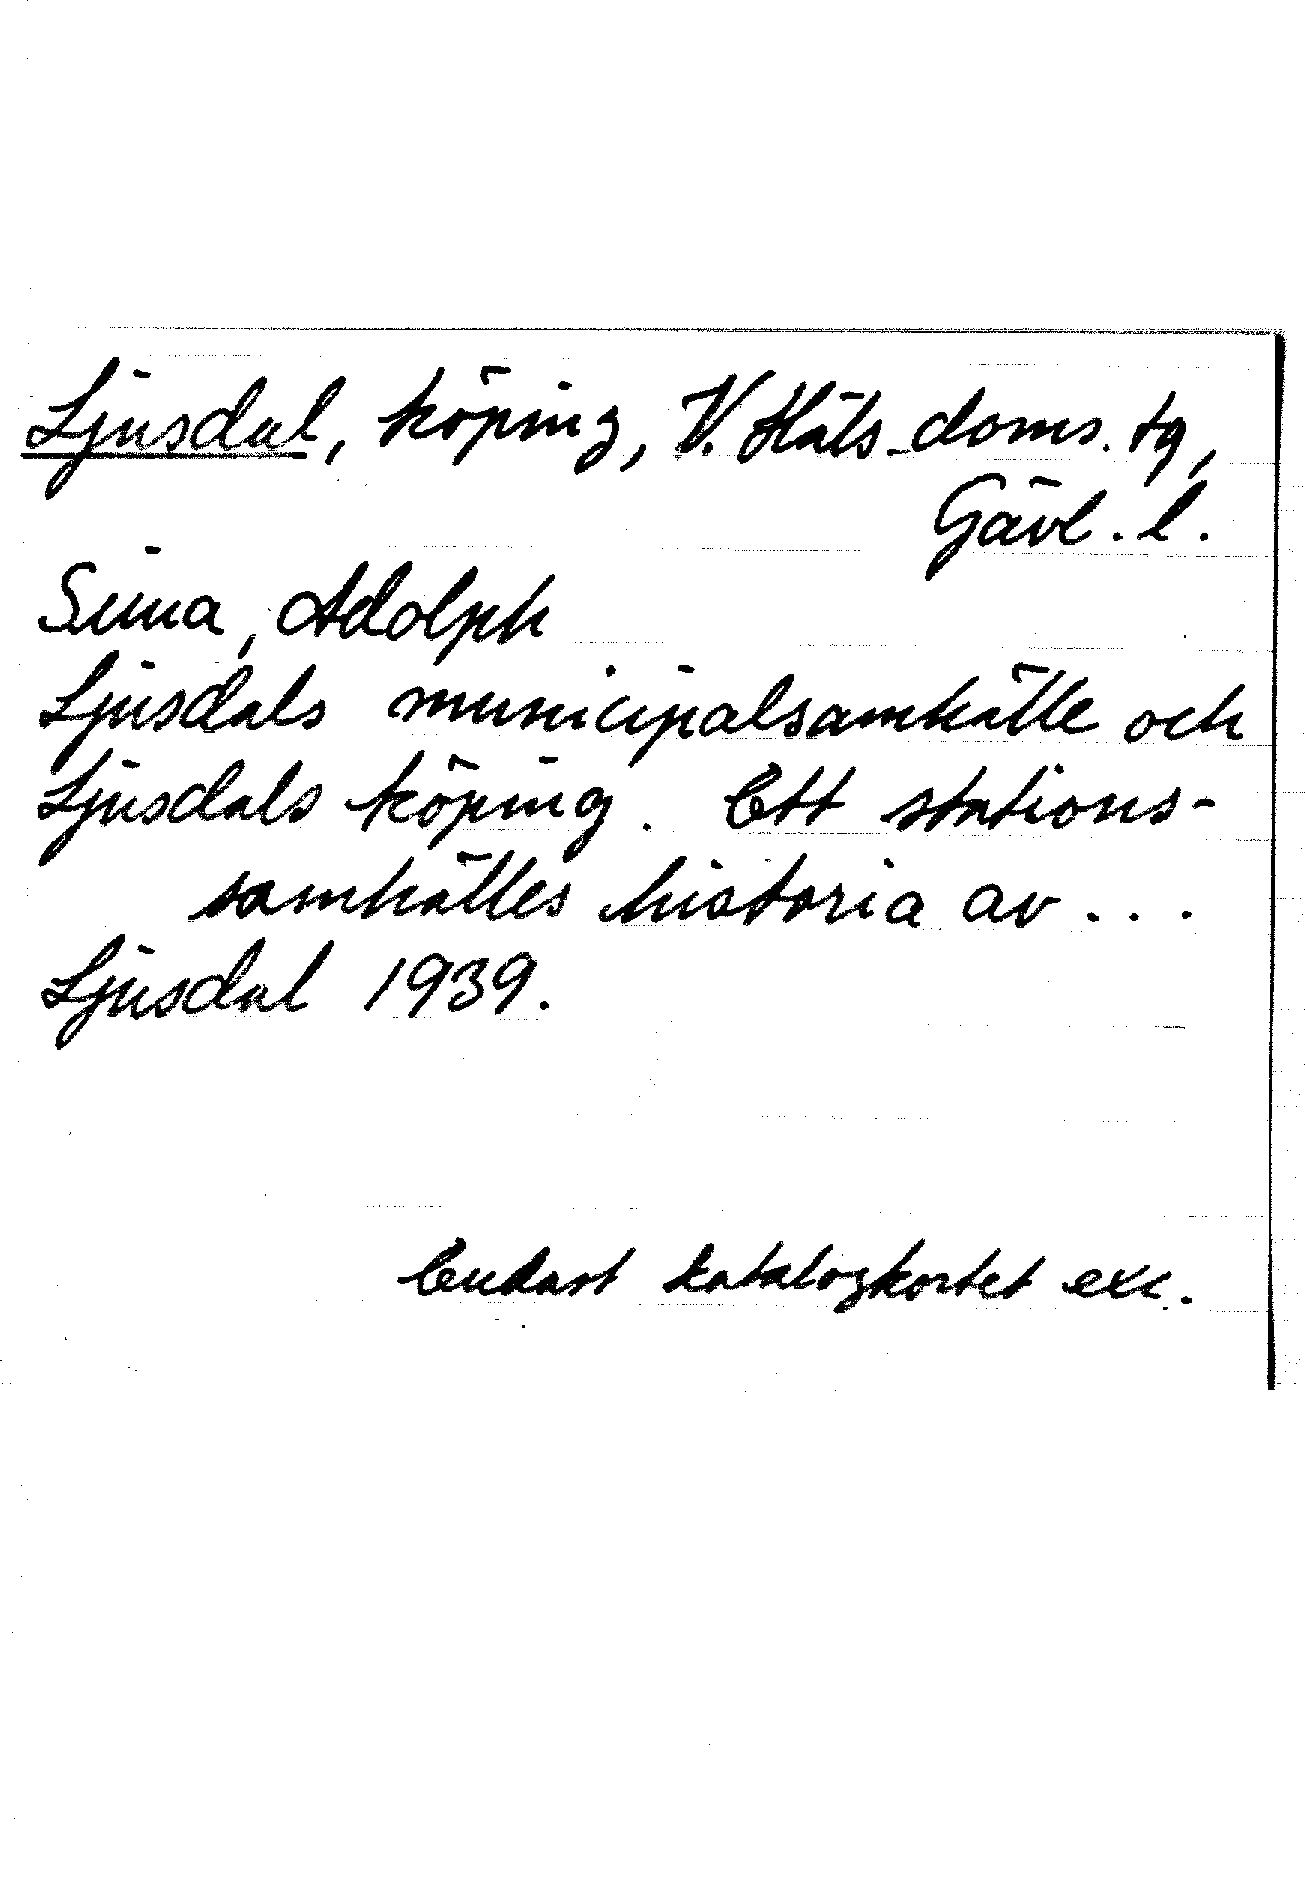 Ljusdal, köping, V. Häls. doms. tg,
Gävl. l.
Sima, Adolph
Ljusdals municipalsamhälle och
Ljusdals köping. Ett stations-
samhälles historia av...
Ljusdal 1939.
Endast katalogkortet exc.